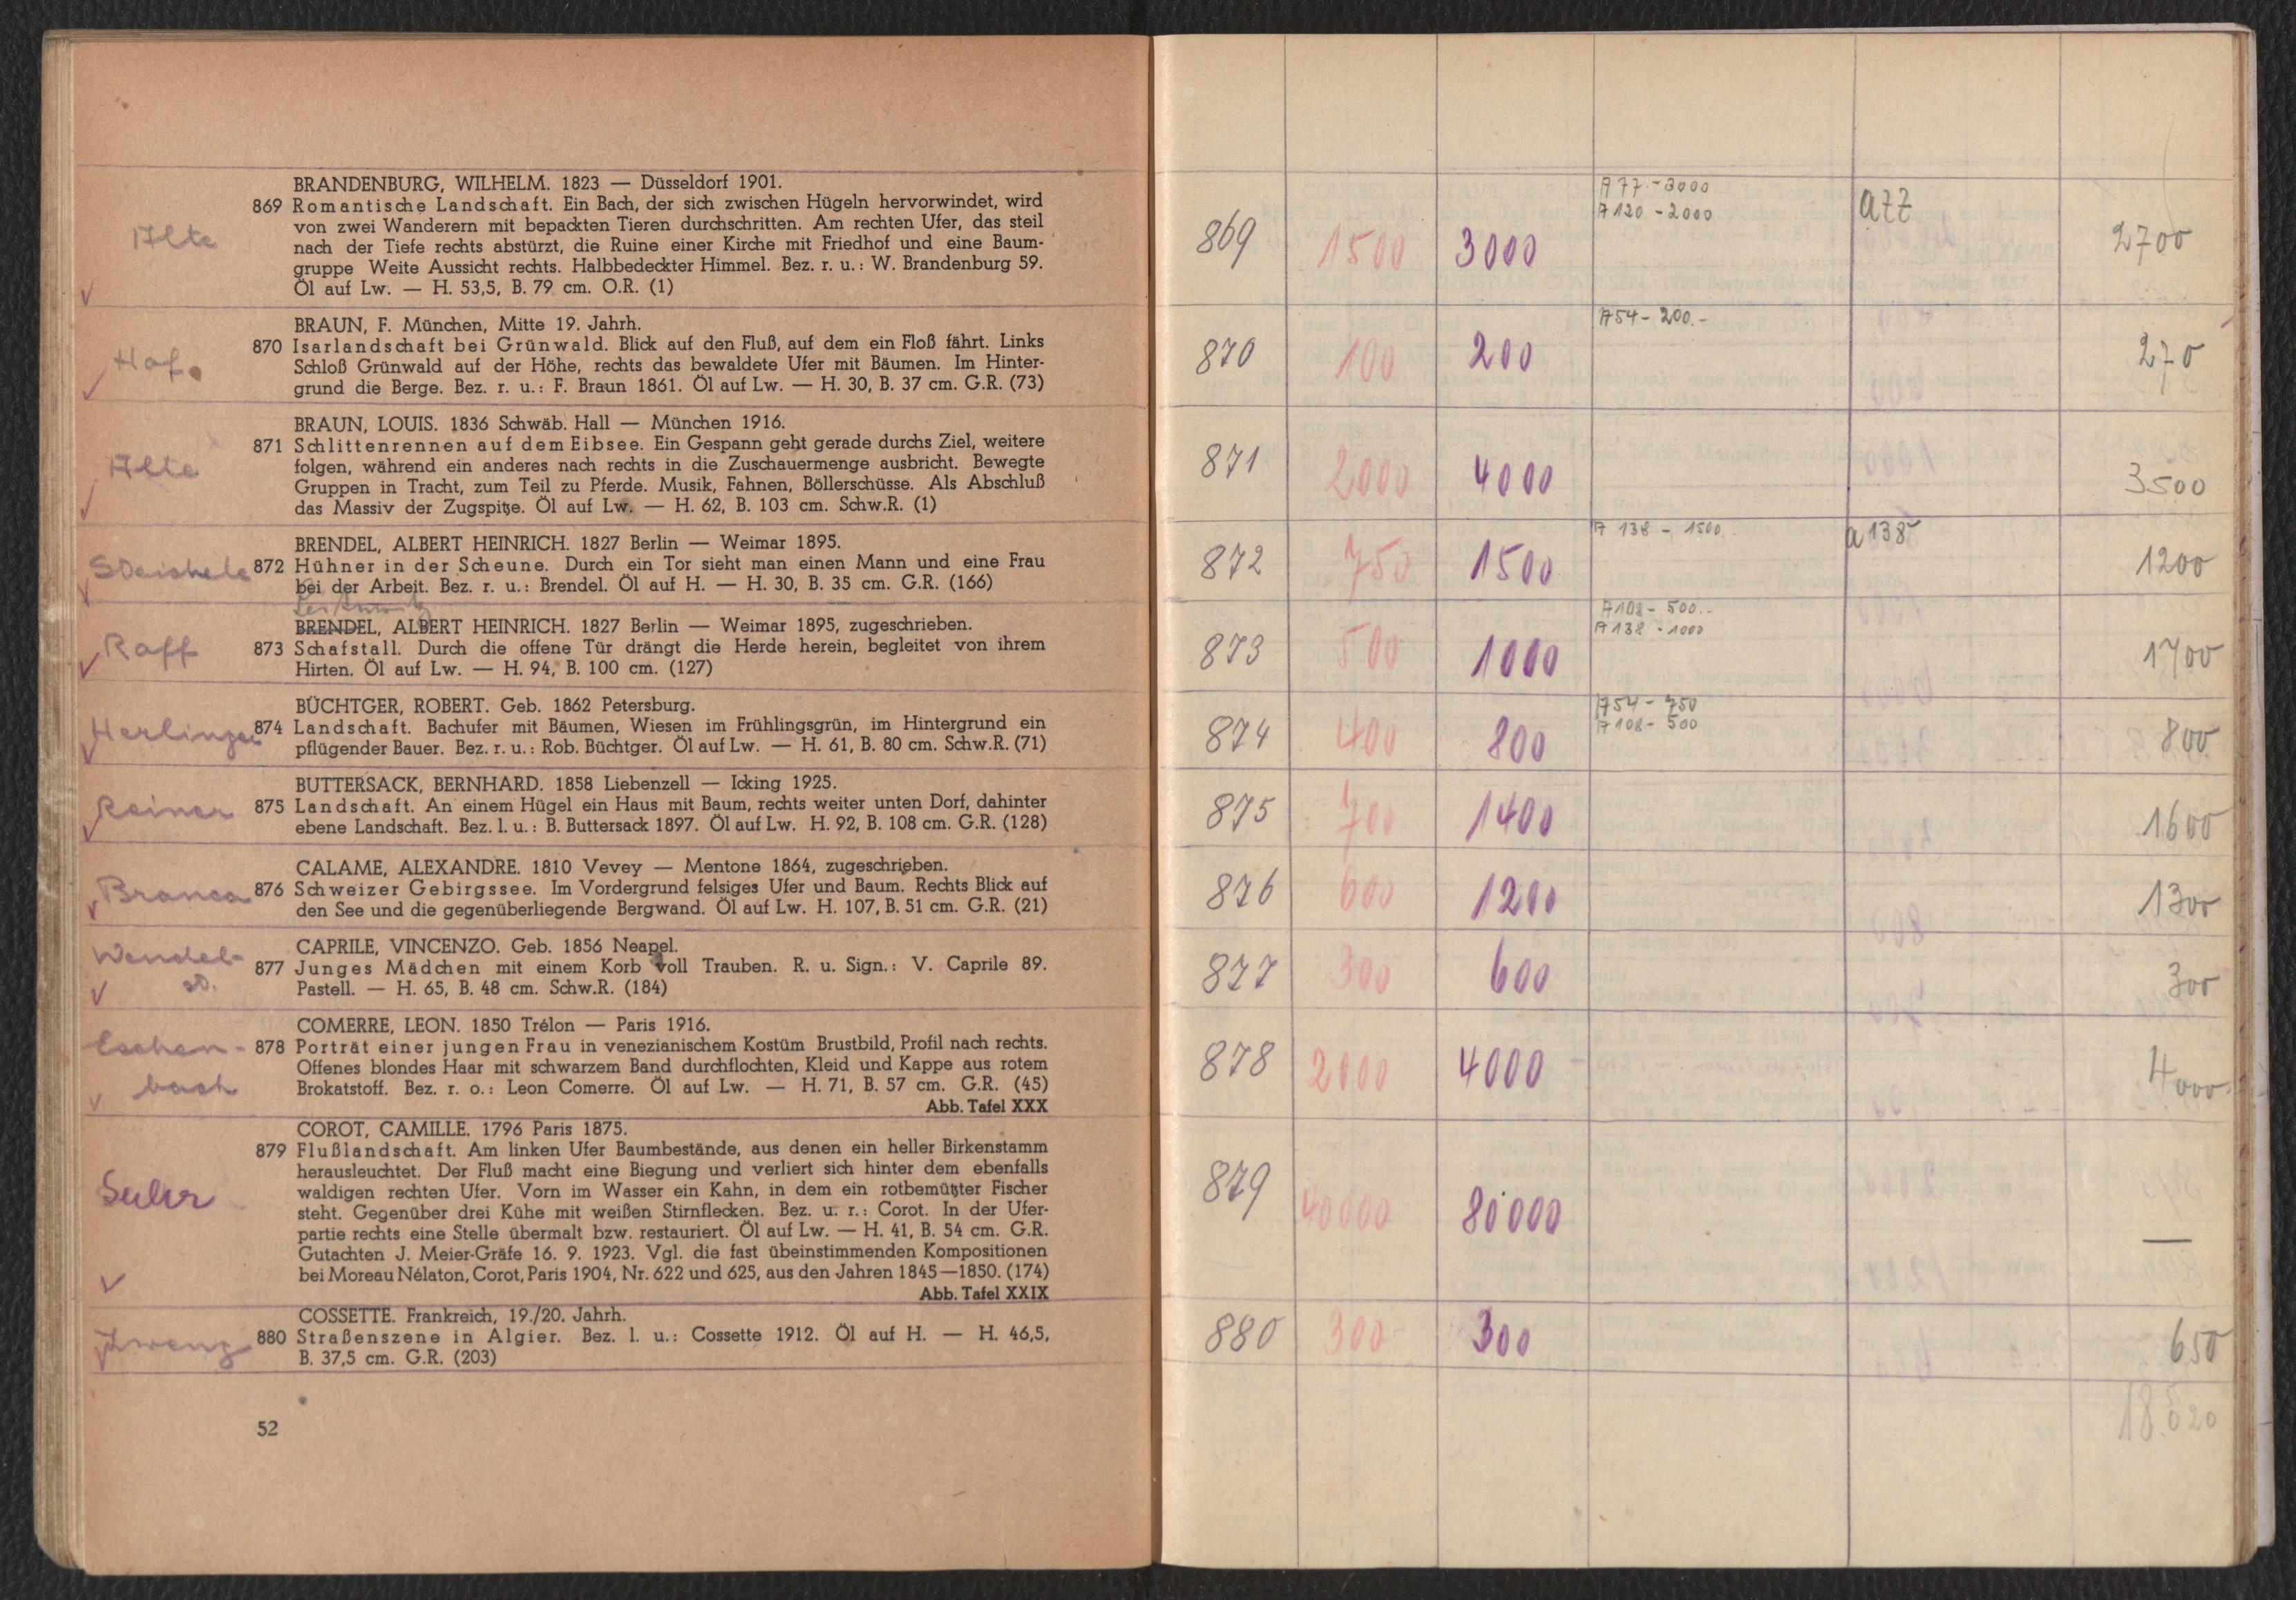 BRANDENBURG, WILHELM. 1823 — Düsseldorf 1901.
869 Romantische Landschaft. Ein Bach, der sich zwischen Hügeln hervorwindet, wird
von zwei Wanderern mit bepackten Tieren durchschritten. Am rechten Ufer, das steil
Alte
nach der Tiefe rechts abstürzt, die Ruine einer Kirche mit Friedhof und eine Baum-
gruppe Weite Aussicht rechts. Halbbedeckter Himmel. Bez. r. u.: W. Brandenburg 59.
Öl auf Lw. — H. 53,5, B. 79 cm. O.R. (1)
BRAUN, F. München, Mitte 19. Jahrh.
870 Isarlandschaft bei Grünwald. Blick auf den Fluß, auf dem ein Floß fährt. Links
Hof.
Schloß Grünwald auf der Höhe, rechts das bewaldete Ufer mit Bäumen. Im Hinter-
grund die Berge. Bez. r. u.: F. Braun 1861. Öl auf Lw. — H. 30, B. 37 cm. G.R. (73)
BRAUN, LOUIS. 1836 Schwäb. Hall — München 1916.
871 Schlittenrennen auf dem Eibsee. Ein Gespann geht gerade durchs Ziel, weitere
Alte
folgen, während ein anderes nach rechts in die Zuschauermenge ausbricht. Bewegte
Gruppen in Tracht, zum Teil zu Pferde. Musik, Fahnen, Böllerschüsse. Als Abschluß
das Massiv der Zugspitze. Öl auf Lw. — H. 62, B. 103 cm. Schw.R. (1)
BRENDEL, ALBERT HEINRICH. 1827 Berlin — Weimar 1895.
872 Hühner in der Scheune. Durch ein Tor sieht man einen Mann und eine Frau
bei der Arbeit. Bez. r. u.: Brendel. Öl auf H. — H. 30, B. 35 cm. G.R. (166)
BRENDEL, ALBERT HEINRICH. 1827 Berlin — Weimar 1895, zugeschrieben.
Raff
873 Schafstall. Durch die offene Tür drängt die Herde herein, begleitet von ihrem
Hirten. Öl auf Lw. — H. 94, B. 100 cm. (127)
BÜCHTGER, ROBERT. Geb. 1862 Petersburg.
Herlinger
874 Landschaft. Bachufer mit Bäumen, Wiesen im Frühlingsgrün, im Hintergrund ein
pflügender Bauer. Bez. r. u.: Rob. Büchtger. Öl auf Lw. — H. 61, B. 80 cm. Schw.R. (71)
BUTTERSACK, BERNHARD. 1858 Liebenzell — Icking 1925.
Reiner
875 Landschaft. An einem Hügel ein Haus mit Baum, rechts weiter unten Dorf, dahinter
ebene Landschaft. Bez. l. u.: B. Buttersack 1897. Öl auf Lw. H. 92, B. 108 cm. G.R. (128)
CALAME, ALEXANDRE. 1810 Vevey — Mentone 1864, zugeschrieben.
Branca
876 Schweizer Gebirgssee. Im Vordergrund felsiges Ufer und Baum. Rechts Blick auf
den See und die gegenüberliegende Bergwand. Öl auf Lw. H. 107, B. 51 cm. G.R. (21)
CAPRILE, VINCENZO. Geb. 1856 Neapel.
Wendel-
877 Junges Mädchen mit einem Korb voll Trauben. R. u. Sign.: V. Caprile 89.
Pastell. — H. 65, B. 48 cm. Schw.R. (184)
COMERRE, LEON. 1850 Trélon — Paris 1916.
Eschen-
878 Porträt einer jungen Frau in venezianischem Kostüm Brustbild, Profil nach rechts.
Offenes blondes Haar mit schwarzem Band durchflochten, Kleid und Kappe aus rotem
bach
Brokatstoff. Bez. r. o.: Leon Comerre. Öl auf Lw. — H. 71, B. 57 cm. G.R. (45)
Abb. Tafel XXX
COROT, CAMILLE. 1796 Paris 1875.
879 Flußlandschaft. Am linken Ufer Baumbestände, aus denen ein heller Birkenstamm
herausleuchtet. Der Fluß macht eine Biegung und verliert sich hinter dem ebenfalls
Suhr
waldigen rechten Ufer. Vorn im Wasser ein Kahn, in dem ein rotbemützter Fischer
steht. Gegenüber drei Kühe mit weißen Stirnflecken. Bez. u. r.: Corot. In der Ufer-
partie rechts eine Stelle übermalt bzw. restauriert. Öl auf Lw. — H. 41, B. 54 cm. G.R.
Gutachten J. Meier-Gräfe 16. 9. 1923. Vgl. die fast übeinstimmenden Kompositionen
bei Moreau Nélaton, Corot, Paris 1904, Nr. 622 und 625, aus den Jahren 1845—1850. (174)
Abb. Tafel XXIX
COSSETTE. Frankreich, 19./20. Jahrh.
Zwenz
880 Straßenszene in Algier. Bez. l. u.: Cossette 1912. Öl auf H. — H. 46,5,
B. 37,5 cm. G.R. (203)
52
A 77 - 3000
A 120 - 2000
869 1500 3000 a77 2700
A 54 - 200.-
870 100 200 270
871 2000 4000 3500
A 138 - 1500
872 750 1500 a138 1200
A 108 - 500.-
A 138 - 1000
873 500 1000 1700
A 54 - 750
A 108 - 500
874 400 800 800
875 700 1400 1600
876 600 1200 1300
877 300 600 300
878 2000 4000 4000
879 40000 80000 —
880 300 300 650
18.020